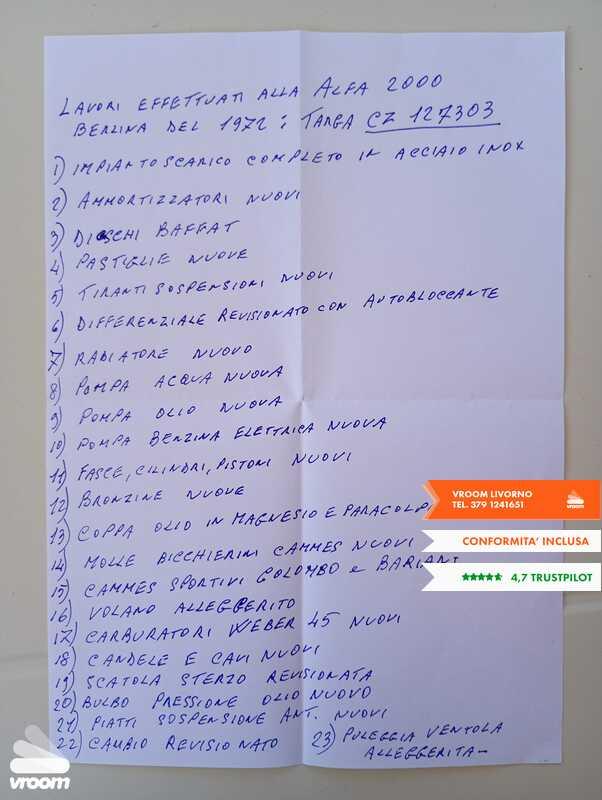 LAVORI EFFETTUATI ALLA ALFA 2000
BERLINA DEL 1972: TARGA CZ 127303
1) IMPIANTO SCARICO COMPLETO IN ACCIAIO INOX
2) AMMORTIZZATORI NUOVI
3) DISCHI BAFFAT
4) PASTIGLIE NUOVE
5) TIRANTI SOSPENSIONI NUOVI
6) DIFFERENZIALE REVISIONATO CON AUTOBLOCCANTE
7) RADIATORE NUOVO
8) POMPA ACQUA NUOVA
9) POMPA OLIO NUOVA
10) POMPA BENZINA ELETTRICA NUOVA
11) FASCE, CILINDRI, PISTONI NUOVI
12) BRONZINE NUOVE
13) COPPA OLIO IN MAGNESIO E PARACOLP
14) MOLLE BICCHIERINI CAMMES NUOVI
15) CAMMES SPORTIVI COLOMBO e BARIANI
16) VOLANO ALLEGGERITO
17) CARBURATORI WEBER 45 NUOVI
18) CANDELE E CAVI NUOVI
19) SCATOLA STERZO REVISIONATA
20) BULBO PRESSIONE OLIO NUOVO
21) PIATTI SOSPENSIONE ANT. NUOVI
22) CAMBIO REVISIONATO
23) PULEGGIA VENTOLA
ALLEGGERITA-
VROOM LIVORNO
TEL. 379 1241651
vroom
CONFORMITA' INCLUSA
4,7 TRUSTPILOT
vroom